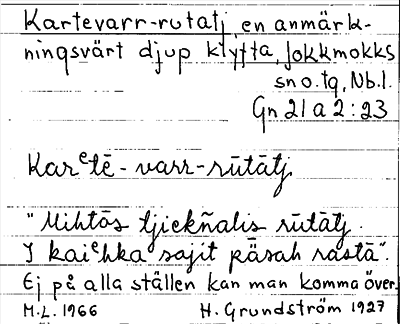 Kartevarr-rutatj, en anmärk-
ningsvärt djup klyfta, Jokkmokks
sn o. tg, Nb. l.
Gn 21 a 2 : 23
Karᵉtē - varr - rūtātj
"Mihtās tjiekñalis rūtātj.
I kaiᵉhka sajit pāsah rastā".
Ej på alla ställen kan man komma över.
M.L. 1966 H. Grundström 1927